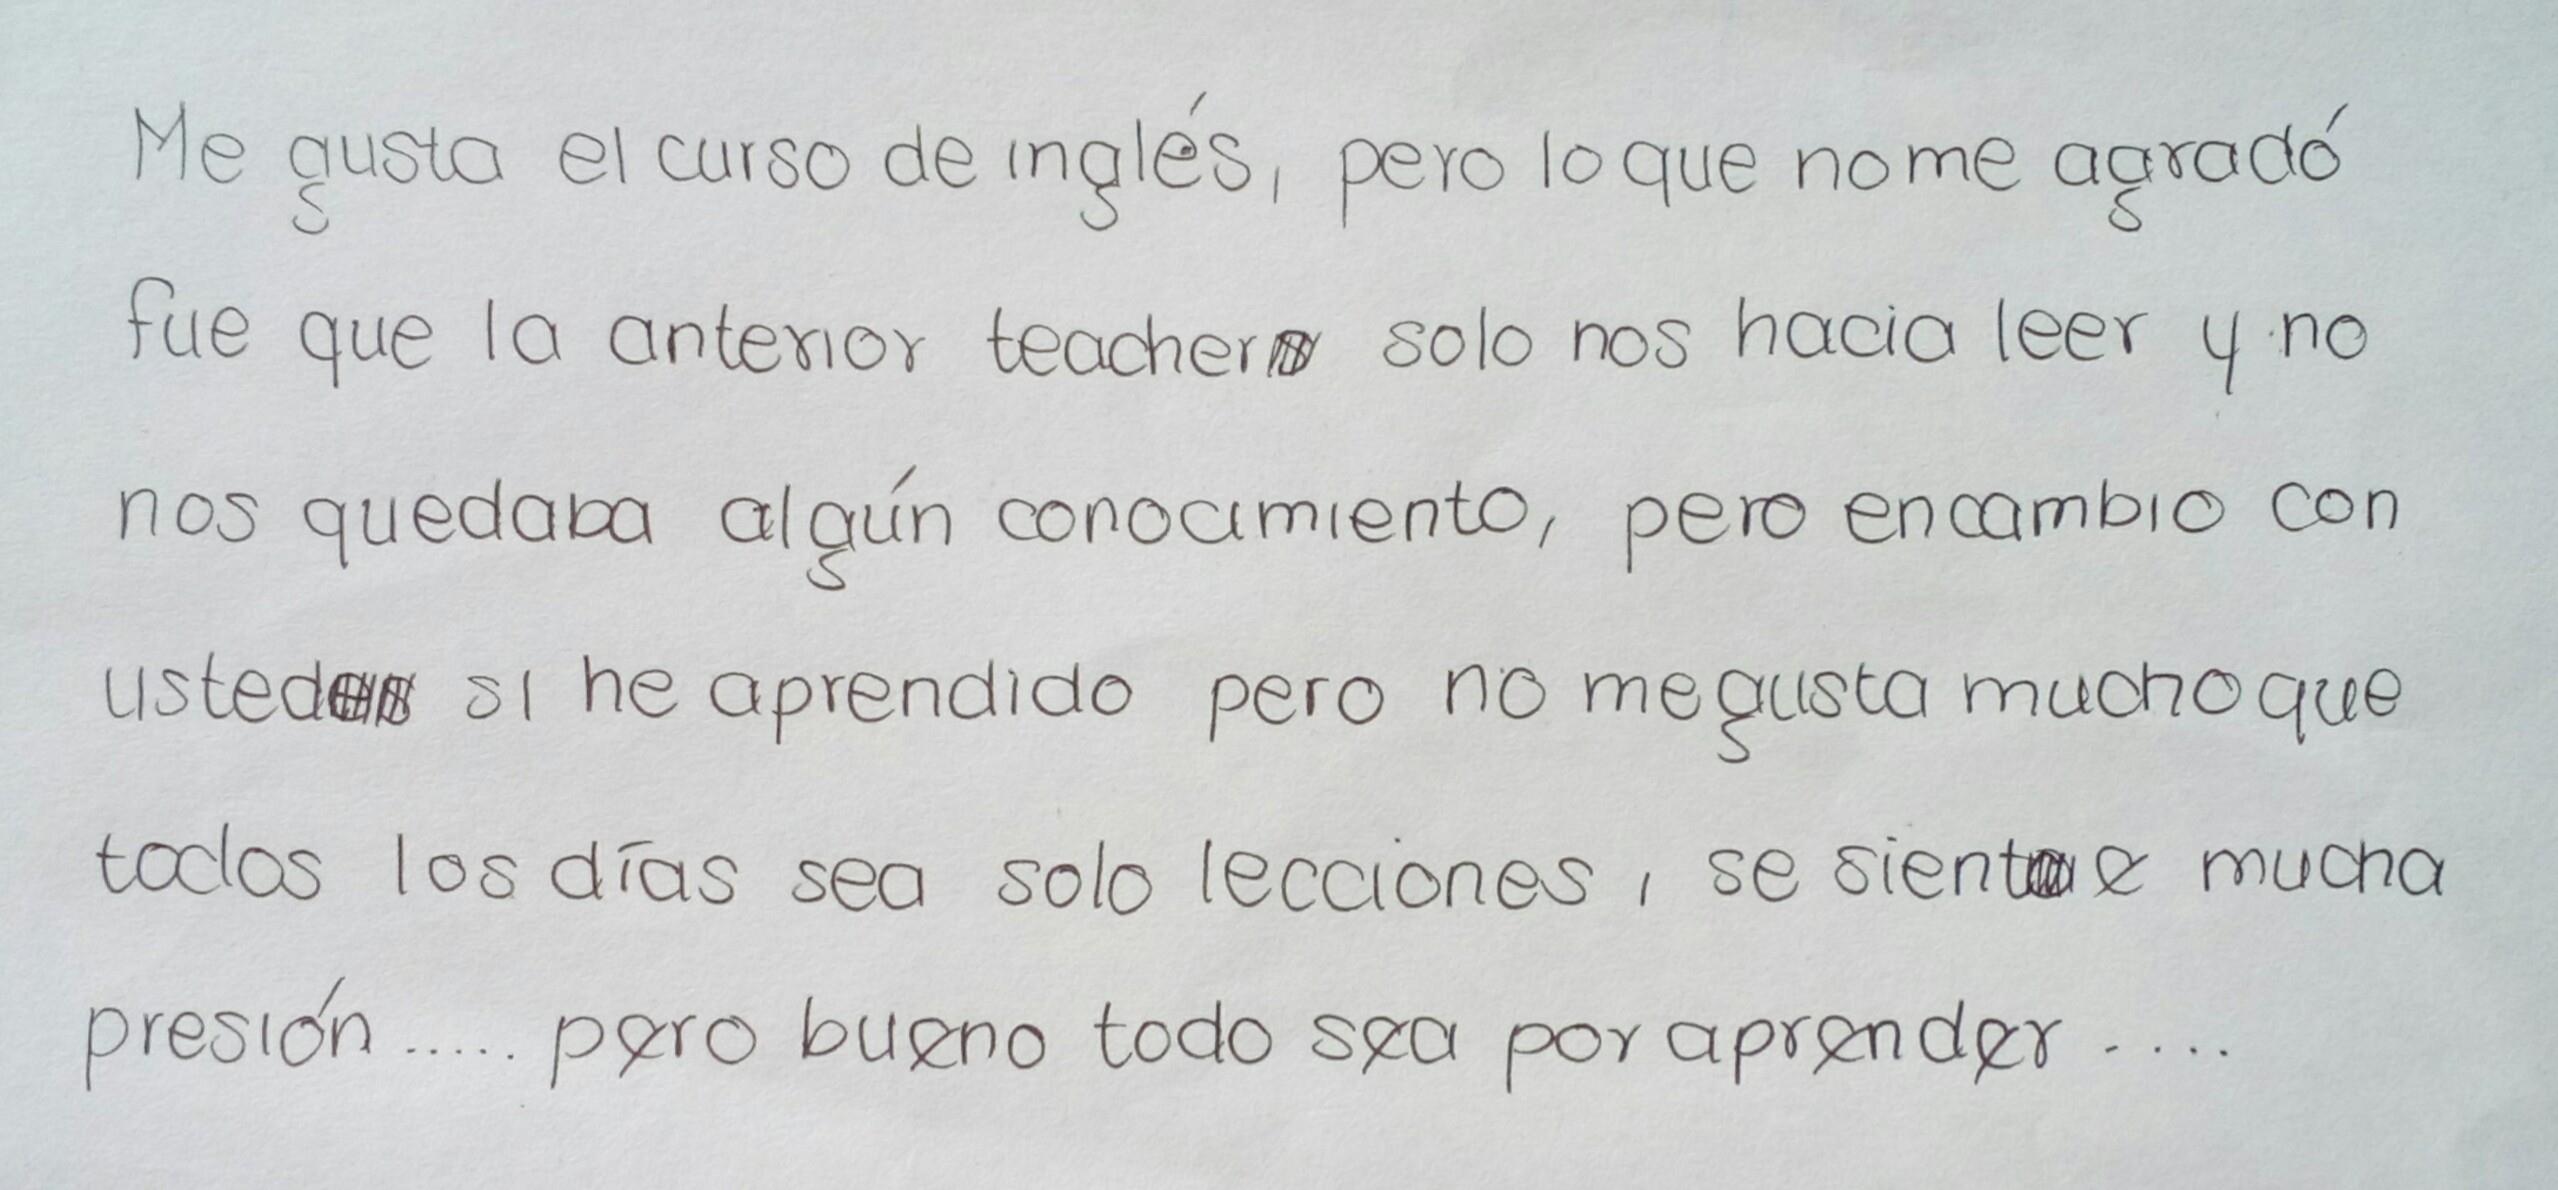 Me gusta el curso de inglés, pero lo que no me agradó
fue que la anterior teacher solo nos hacia leer y no
nos quedaba algún conocimiento, pero en cambio con
usted si he aprendido pero no me gusta mucho que
todos los días sea solo lecciones, se siente mucha
presión ..... pero bueno todo sea por aprender ....